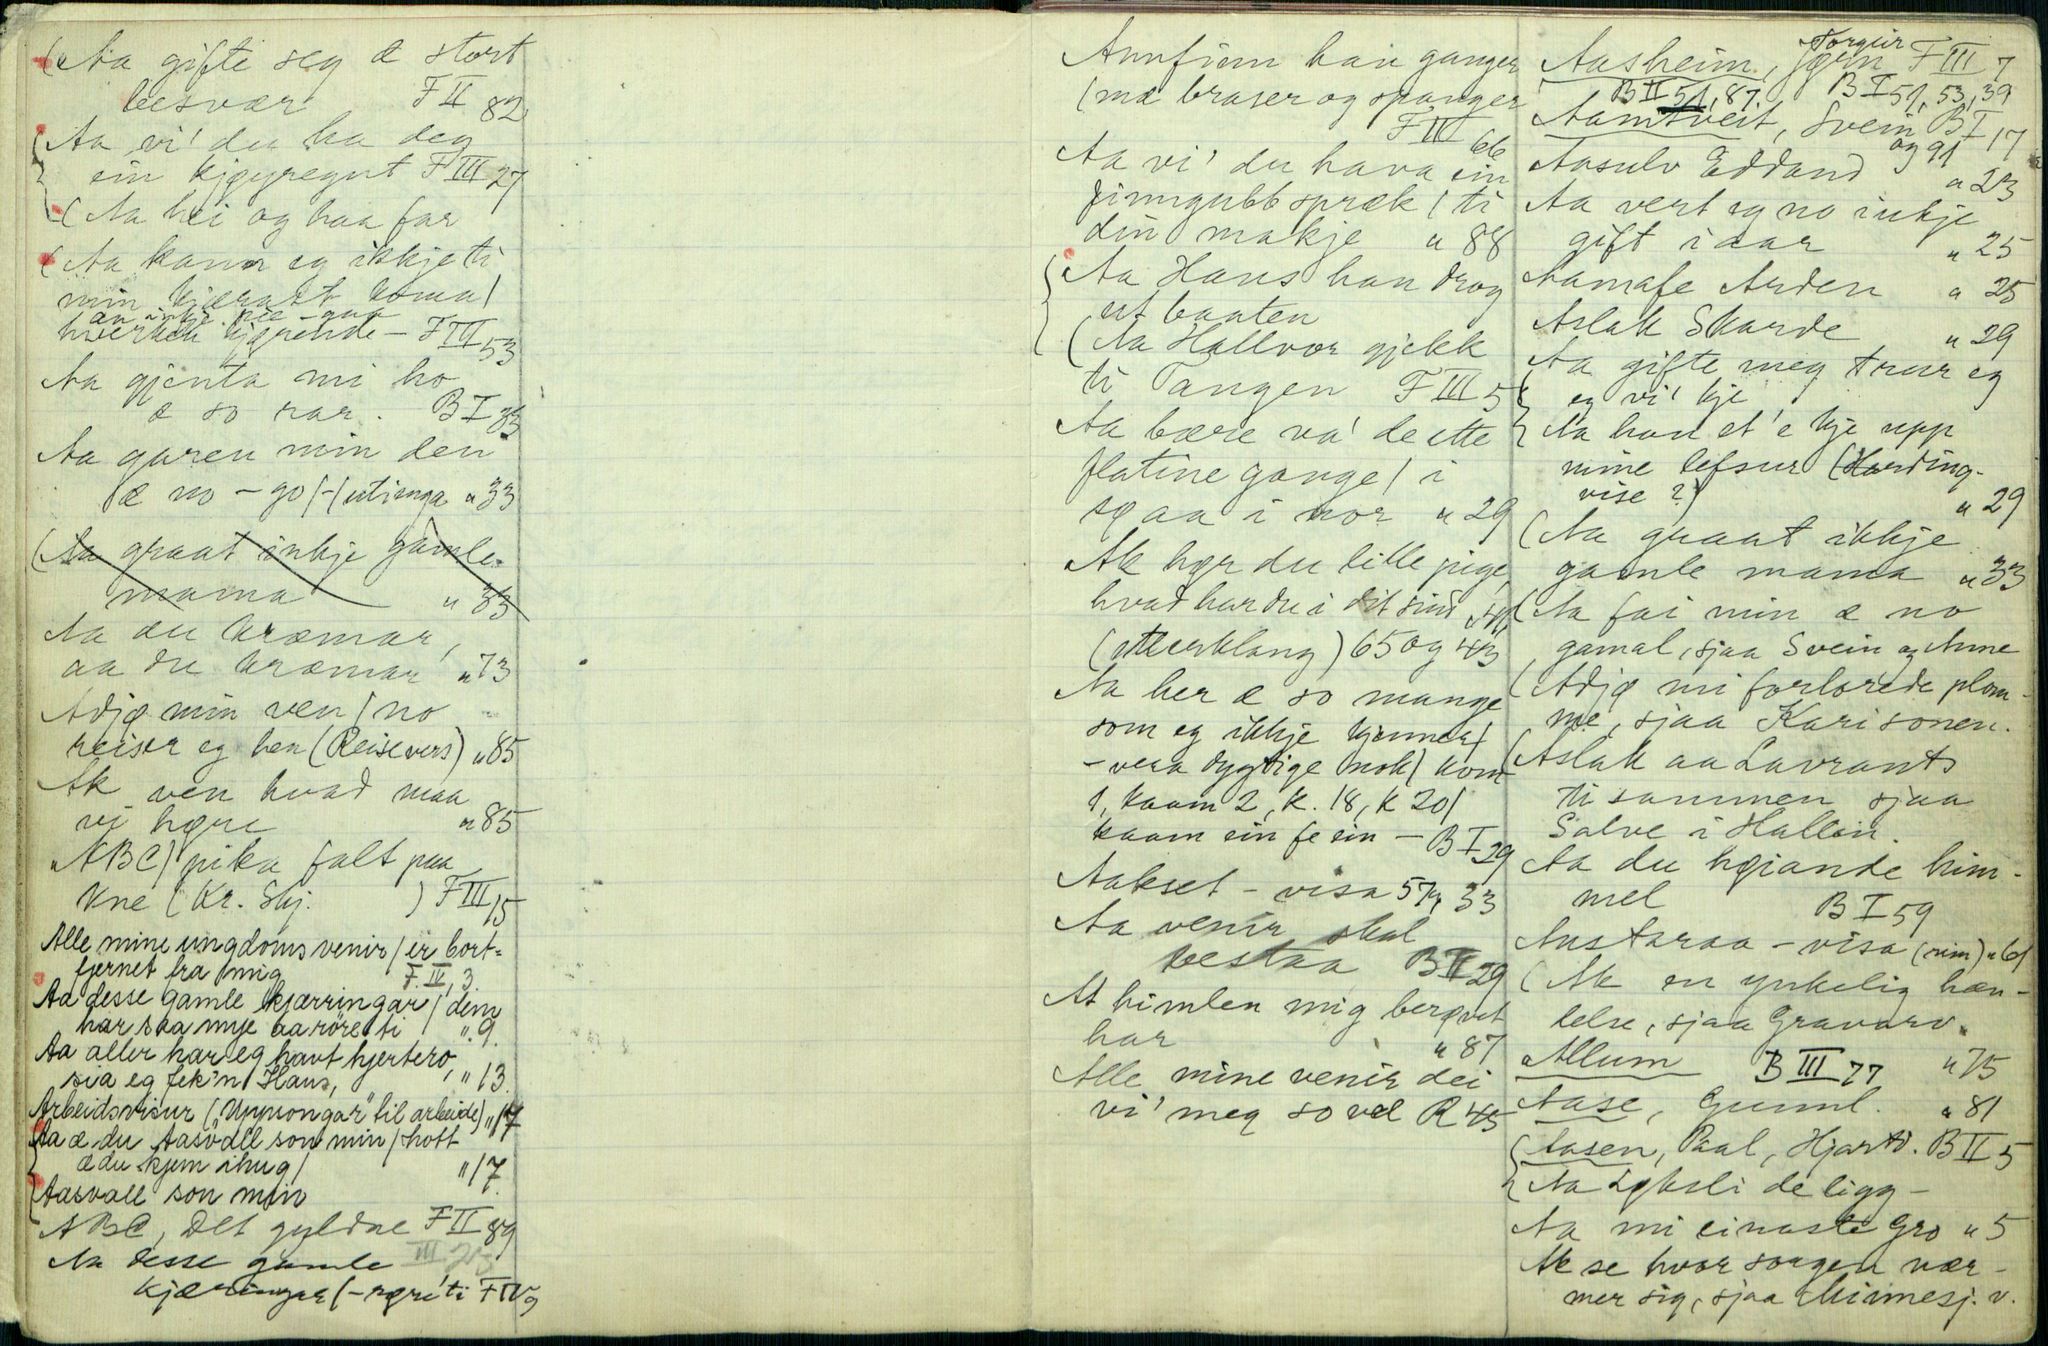 (Aa gifte seg æ stort
besvær F II 82
Aa vi' du ha deg
ein kjøyregut F III 27
(Aa hei og haa far
(Aa kann eg ikkje ti
min kjærast koma/
hverken kjørende – F III 53
Aa gjenta mi ho
æ so rar. B I 33
Aa garen min den
æ no – go/-/utinga " 33
(Aa graat inkje gamle
mama " 33
Aa du kræmar,
aa du kræmar " 73
Adjø min ven / no
reiser eg hen (Reisevers) " 85
Ak ven hvad maa
vi høre " 85
"ABC / pika falt paa
kne (Kr. Skj. ) F III 15
Alle mine ungdoms venir / er bort-
fjernet fra mig F. IV, 3.
Aa desse gamle kjærringar / dem
har saa mye aa röre ti ". 9.
Aa aller har eg havt hjertero,
sia eg fek'n Hans, " 13.
Arbeidsvisur ("Uppsongar" til arbeide) " 17
Aa æ du Aasvall son min / hott
æ du kjem ihug / " 17.
Aasvall son min
ABC, Det gyldne F II 89
Aa desse gamle III 25
kjæringar / – røre ti F IV 9
Annfinn han ganger
(mæ braser og spanger
F III 66
Aa vi' du hava ein
finngubb spræk / ti
din makje " 88
Aa Hans han drog
ut baaten
(Aa Hallvor gjekk
ti Tangen F III 5
Aa bære va' de ette
flatine gange / i
søaa i nor " 29
Ak hør du lille pige
hvad har du i dit sind
(etterklang) 65 og 43
Aa her æ so mange
som eg ikkje kjenner /
– vera dygtige nok / kom
1, kaam 2, k. 18, k 20 /
kaam ein fe ein – B I 29
Aakset – visa 57, 33
Aa venir skal
bestaa B II 29
At himlen mig berøvet
har " 87
Alle mine venir dei
vi' meg so vel R 45
Torgeir
Aasheim, Jørn F III 7
B II 51, 87. B I 51, 53, 39
Aamtveit, Svein B I 17
og 91
Aasulv Eddand " 23
Aa vert eg no inkje
gift i aar " 25
Aamafe Arden " 25
Aslak Skarde " 29
Aa gifte meg trur eg
eg vi' kje
Aa han et'e kje upp
mine lefsur (Harding-
vise ?) " 29
(Aa graat ikkje
gamle mama " 33
(Aa fai min æ no
gamal, sjaa Svein og Anne
(Adjø mi forlorede plom-
me, sjaa Kari sonen.
(Aslak aa Lavrants
ti sammen sjaa
Salve i Hallin.
Aa du høiande him-
mel B I 59
Austaraa – visa (rim) " 61
(Ak en ynkelig hæn-
delse, sjaa Gravarv.
Allum B III 77 " 75
Aase, Gunnl. " 81
(Aasen, Paal, Hjartd. B II 5
Aa Løksli de ligg –
Aa mi einaste Gro " 5
Ak se hvor sorgen nær-
mer sig, sjaa Minnesj. v.